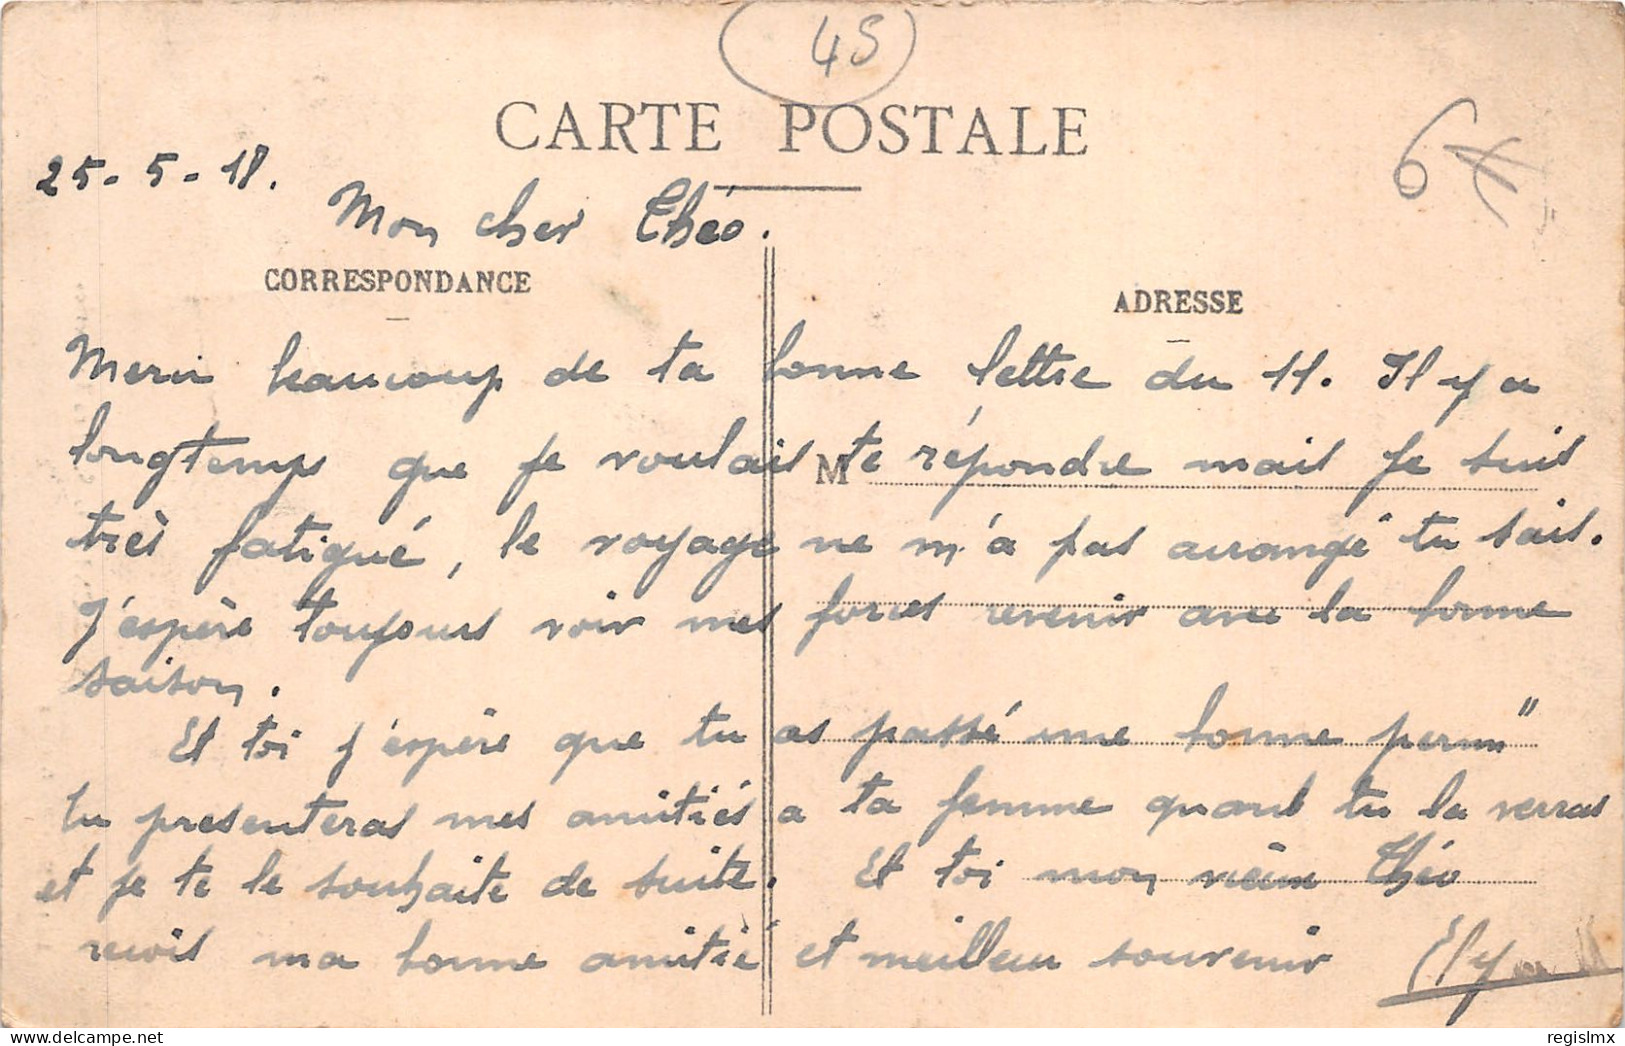 45
CARTE POSTALE
6
25-5-18.
Mon cher Théo.
CORRESPONDANCE
ADRESSE
Merci beaucoup de ta bonne lettre du 11. Il y a
longtemps que je voulais te répondre mais je suis
M
très fatigué, le voyage ne m'a pas arrangé tu sais.
J'espère toujours voir mes forces revenir avec la bonne
saison.
Et toi j'espère que tu as passé une bonne perm"
tu presenteras mes amitiés a ta femme quand tu la verras
et je te le souhaite de suite. Et toi mon vieux Théo
reçois ma bonne amitié et meilleur souvenir Ely
regislmx